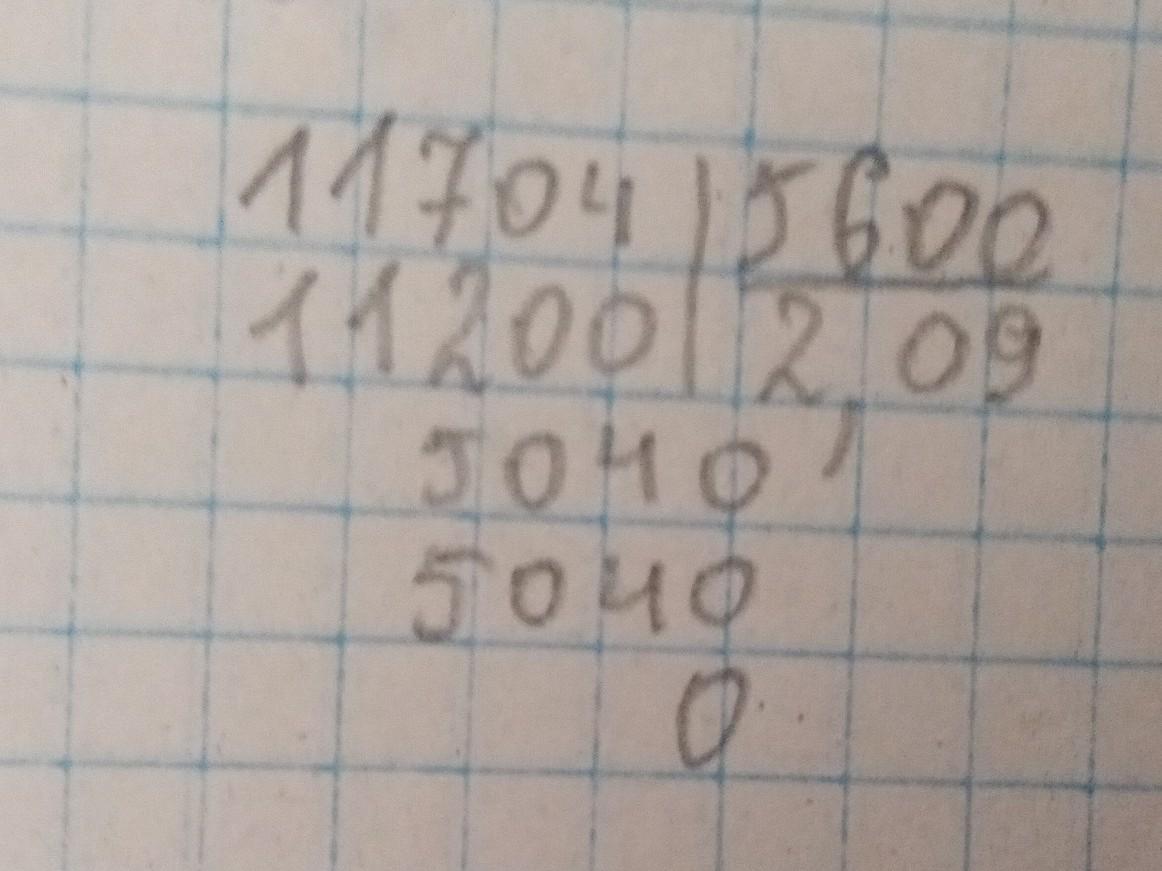 11704 | 5600
11200 | 2,09
5040
5040
0